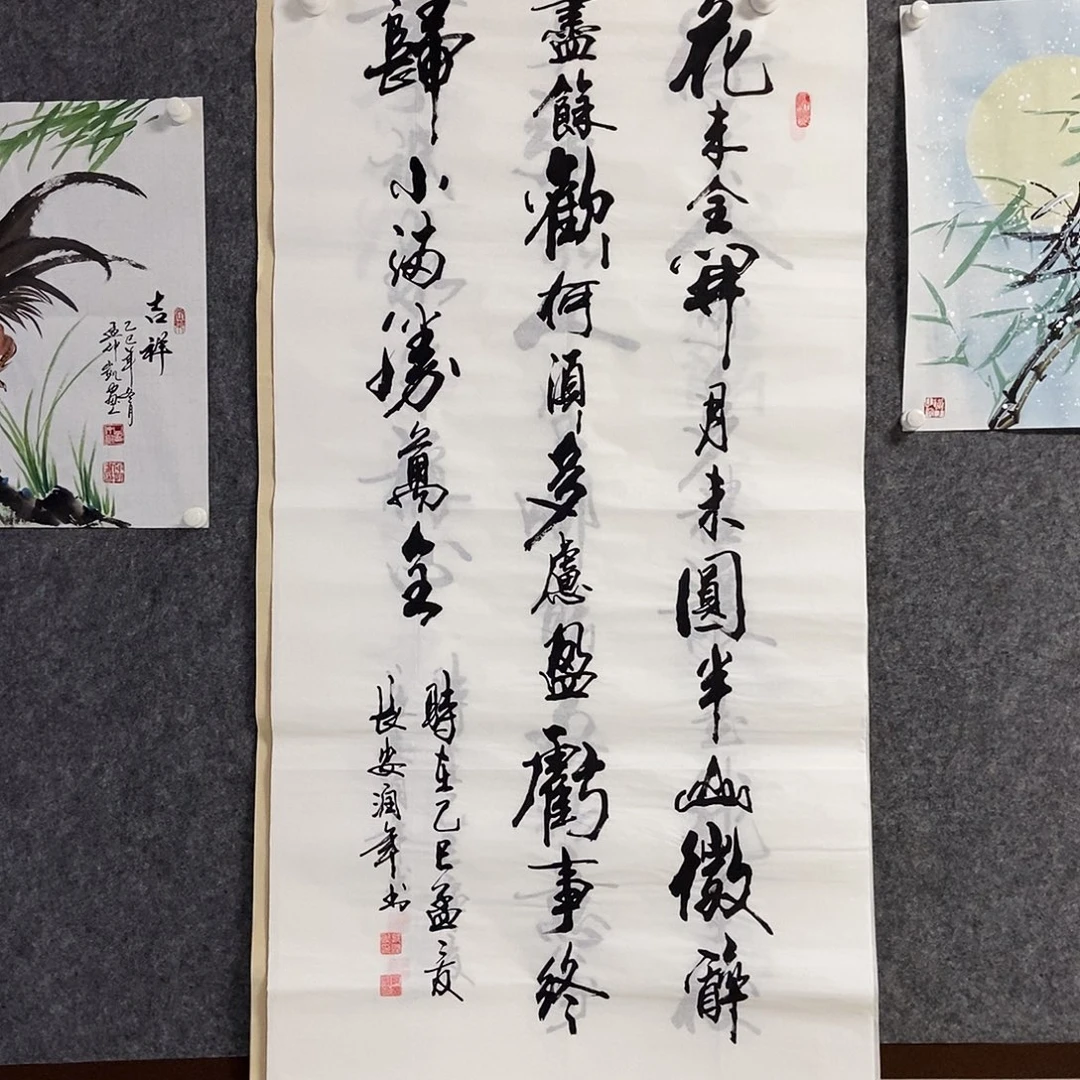 花未全開月未圓半山微醉
盡餘歡何須多慮盈虧事終
歸小滿勝萬全
時在乙巳孟夏
長安潤年书
吉祥
乙巳年冬月